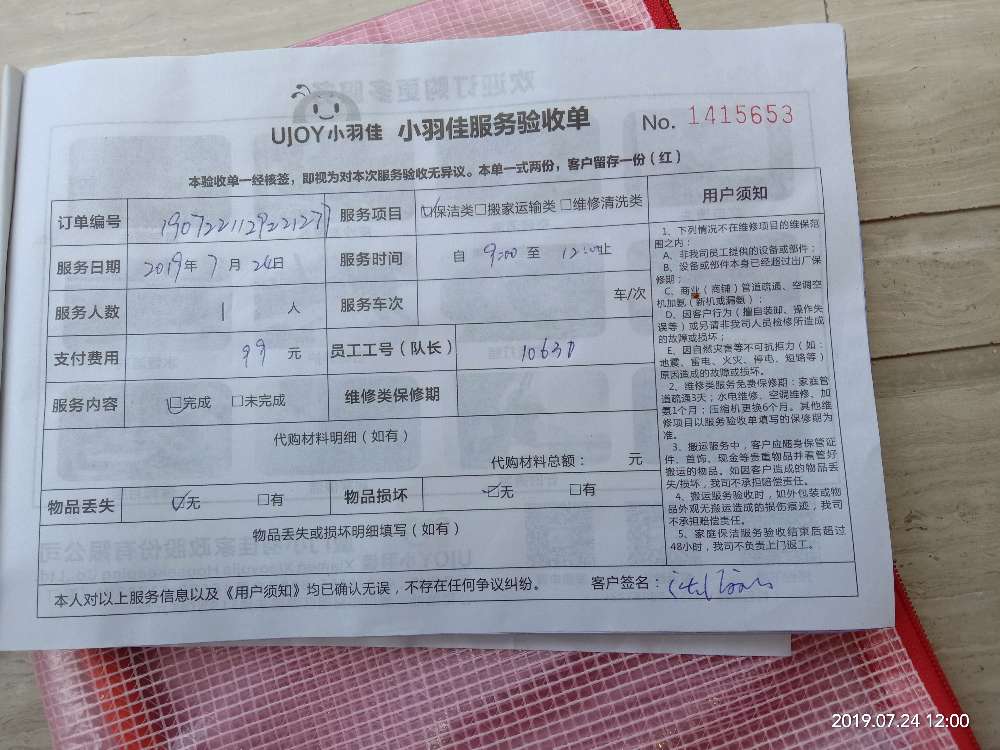 UJOY小羽佳 小羽佳服务验收单 No. 1415653
本验收单一经核签，即视为对本次服务验收无异议。本单一式两份，客户留存一份（红）
订单编号 服务项目 ☑保洁类□搬家运输类□维修清洗类
服务日期 2019年7月24日 服务时间 自 9:00 至 12:00止
服务人数 1 人 服务车次 车/次
支付费用 99 元 员工工号（队长）
服务内容 ☑完成 □未完成 维修类保修期
代购材料明细（如有）
代购材料总额： 元
物品丢失 ☑无 □有 物品损坏 ☑无 □有
物品丢失或损坏明细填写（如有）
用户须知
1、下列情况不在维修项目的维保范
围之内：
A、非我司员工提供的设备或部件；
B、设备或部件本身已经超过出厂保
修期；
C、商业（商铺）管道疏通、空调空
机加氨（新机或漏氨）；
D、因客户行为（擅自装卸、操作失
误等）或另请非我司人员检修所造成
的故障或损坏；
E、因自然灾害等不可抗拒力（如：
地震、雷电、火灾、停电、短路等）
原因造成的故障或损坏。
2、维修类服务免费保修期：家庭管
道疏通3天；水电维修、空调维修、加
氨1个月；压缩机更换6个月。其他维
修项目以服务验收单填写的保修期为
准。
3、搬运服务中，客户应随身保管证
件、首饰、现金等贵重物品并看管好
搬运的物品。如因客户造成的物品丢
失/损坏，我司不承担赔偿责任。
4、搬运服务验收时，如外包装或物
品外观无搬运造成的损伤痕迹，我司
不承担赔偿责任。
5、家庭保洁服务验收结束后超过
48小时，我司不负责上门返工。
本人对以上服务信息以及《用户须知》均已确认无误，不存在任何争议纠纷。 客户签名：
2019.07.24 12:00